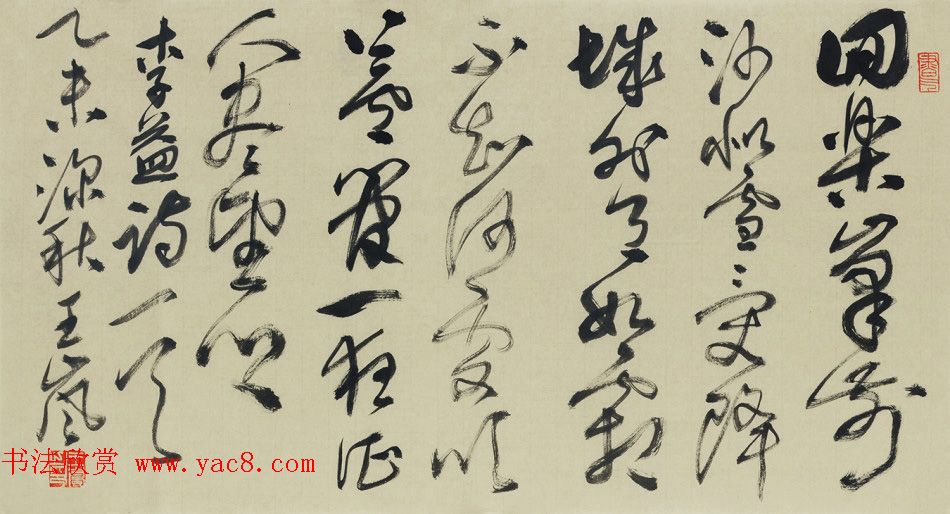 回樂峯前
沙似雪受降
城外月如霜
不知何處吹
蘆管一夜征
人盡望鄉
李益詩一首
乙未深秋王嵐
书法欣赏 www.yac8.com